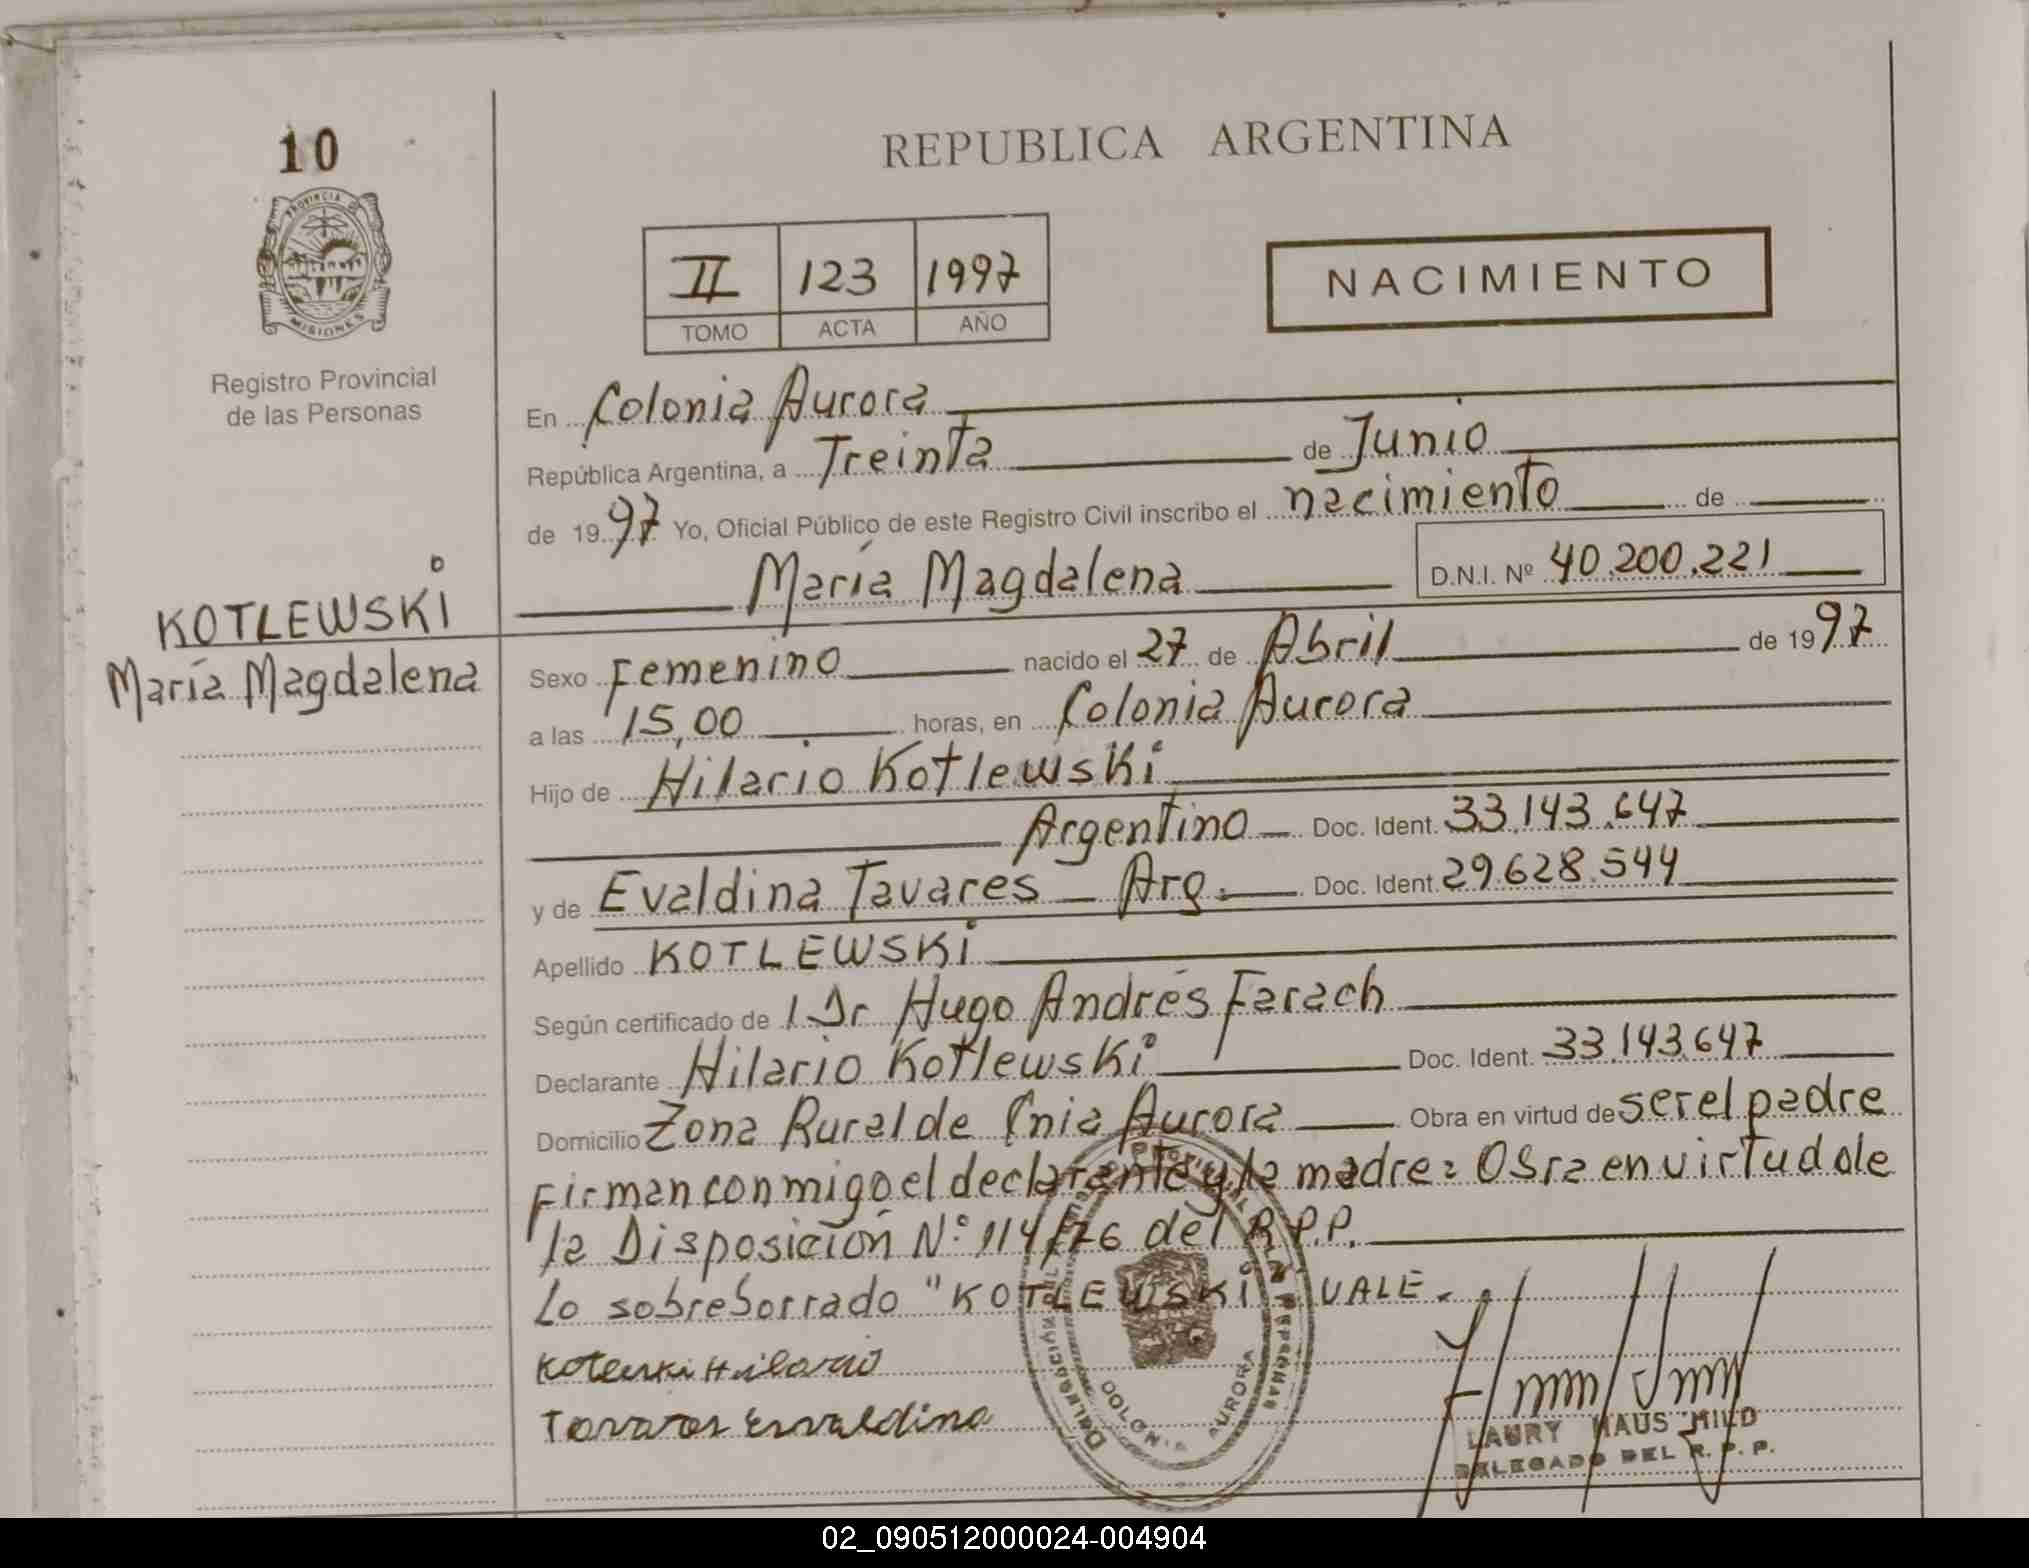 10
REPUBLICA ARGENTINA
PROVINCIA DE
MISIONES
II 123 1997
TOMO ACTA AÑO
NACIMIENTO
Registro Provincial
de las Personas
En Colonia Aurora
República Argentina, a Treinta de Junio
de 1997 Yo, Oficial Público de este Registro Civil inscribo el nacimiento de
María Magdalena D.N.I. Nº 40.200.221
KOTLEWSKI
María Magdalena
Sexo Femenino nacido el 27 de Abril de 1997
a las 15,00 horas, en Colonia Aurora
Hijo de Hilario Kotlewski
Argentino Doc. Ident. 33.143.647
y de Evaldina Tavares Arg. Doc. Ident. 29.628.544
Apellido KOTLEWSKI
Según certificado de l Dr Hugo Andrés Farach
Declarante Hilario Kotlewski Doc. Ident. 33.143.647
Domicilio Zona Rural de Cnia Aurora Obra en virtud de ser el padre
Firman conmigo el declarante y la madre: Obra en virtud de
la Disposición N° 114/76 del R.P.P.
Lo sobreborrado "KOTLEWSKI" VALE.
Hilario
Tavares Evaldina
COLONIA AURORA
LAURY HAUS MILD
DELEGADO DEL R. P. P.
02_090512000024-004904